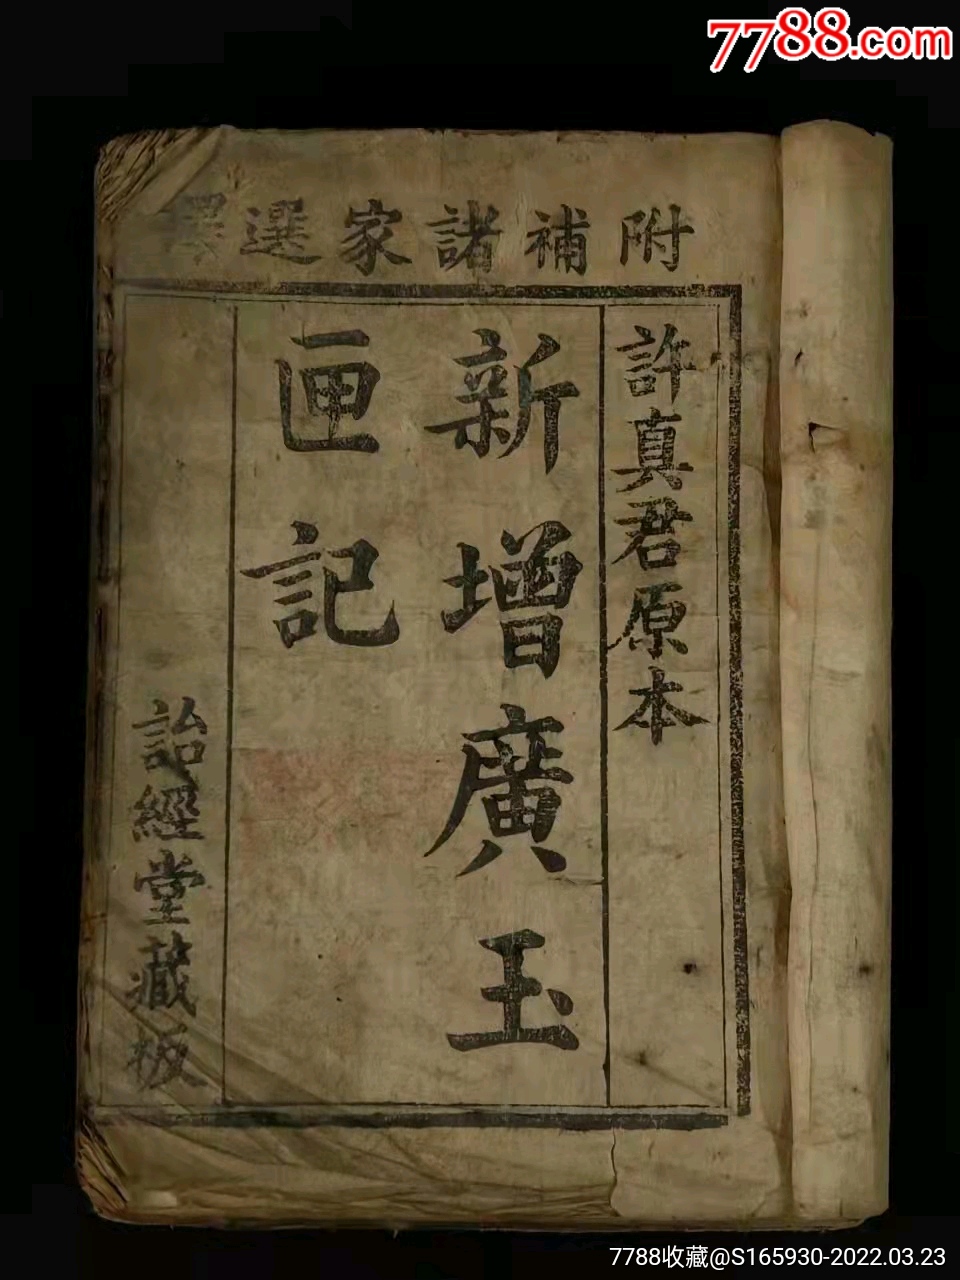 7788.com
附補諸家選擇
許真君原本
新增廣玉
匣記
詒經堂藏板
7788收藏@S165930-2022.03.23